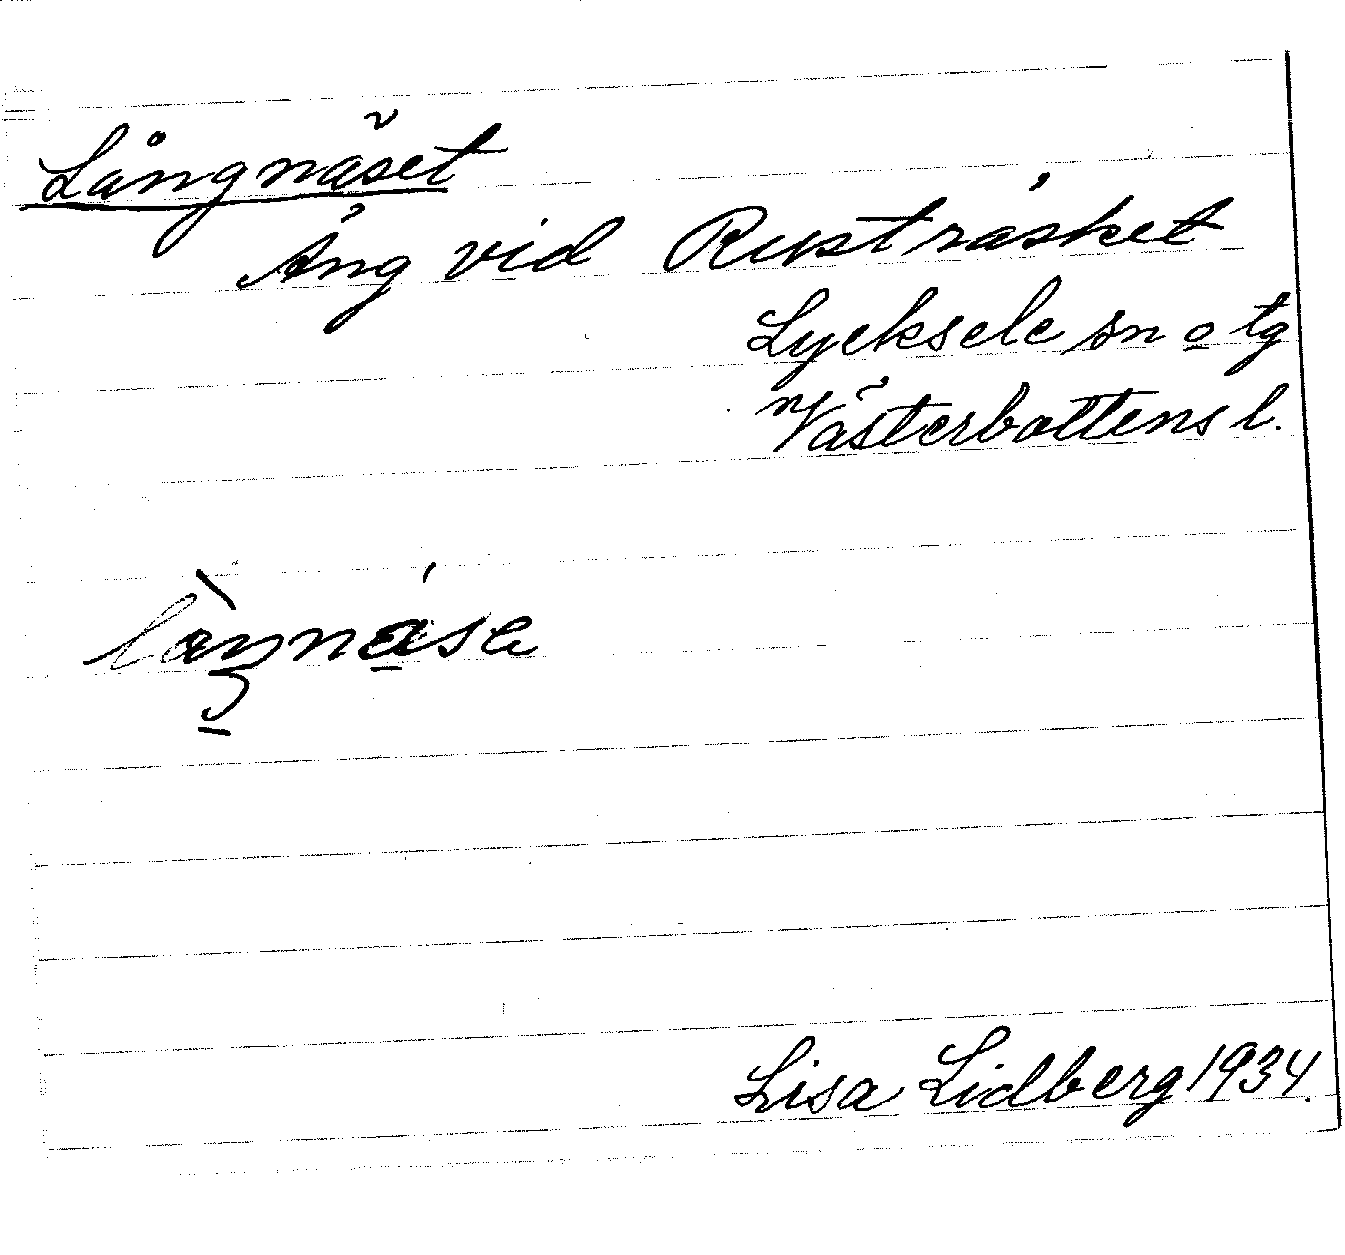 Långnäset
Äng vid Rusträsket
Lycksele sn o tg
Västerbottens l.
Lisa Lidberg 1934.